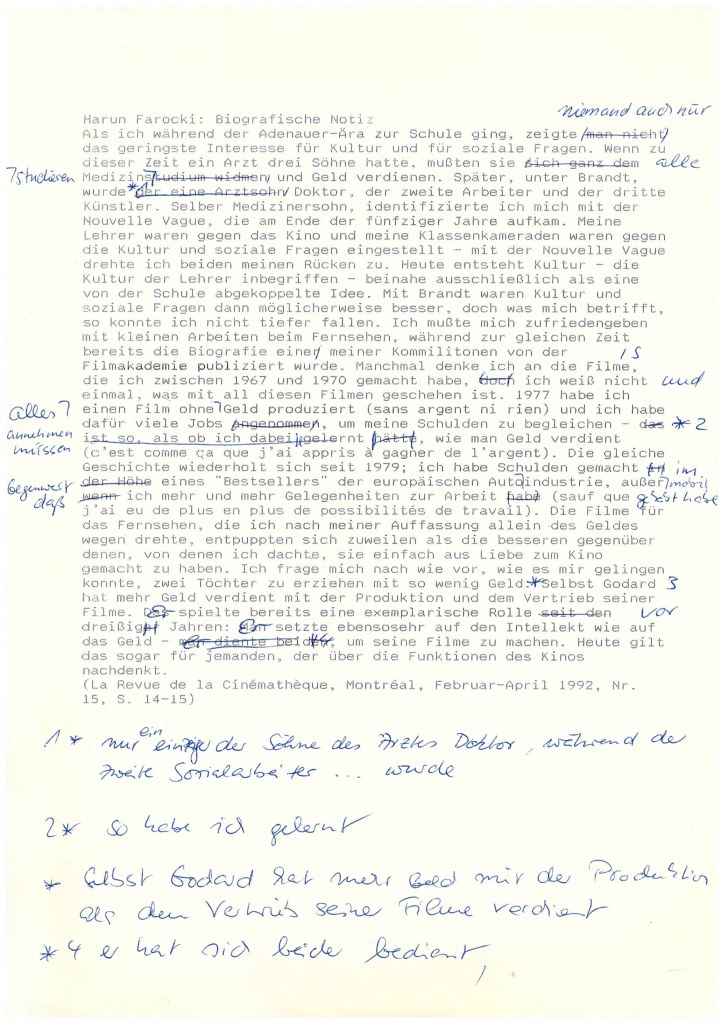 niemand auch nur
Harun Farocki: Biografische Notiz
Als ich während der Adenauer-Ära zur Schule ging, zeigte man nicht
das geringste Interesse für Kultur und für soziale Fragen. Wenn zu
dieser Zeit ein Arzt drei Söhne hatte, mußten sie sich ganz dem alle
studieren Medizinstudium widmen und Geld verdienen. Später, unter Brandt,
wurde *1 der eine Arztsohn Doktor, der zweite Arbeiter und der dritte
Künstler. Selber Medizinersohn, identifizierte ich mich mit der
Nouvelle Vague, die am Ende der fünfziger Jahre aufkam. Meine
Lehrer waren gegen das Kino und meine Klassenkameraden waren gegen
die Kultur und soziale Fragen eingestellt - mit der Nouvelle Vague
drehte ich beiden meinen Rücken zu. Heute entsteht Kultur - die
Kultur der Lehrer inbegriffen - beinahe ausschließlich als eine
von der Schule abgekoppelte Idee. Mit Brandt waren Kultur und
soziale Fragen dann möglicherweise besser, doch was mich betrifft,
so konnte ich nicht tiefer fallen. Ich mußte mich zufriedengeben
mit kleinen Arbeiten beim Fernsehen, während zur gleichen Zeit
bereits die Biografie einer meiner Kommilitonen von der s
Filmakademie publiziert wurde. Manchmal denke ich an die Filme,
die ich zwischen 1967 und 1970 gemacht habe, doch ich weiß nicht und
einmal, was mit all diesen Filmen geschehen ist. 1977 habe ich
alles einen Film ohne Geld produziert (sans argent ni rien) und ich habe
annehmen dafür viele Jobs angenommen, um meine Schulden zu begleichen - das *2
müssen ist so, als ob ich dabei gelernt hätte, wie man Geld verdient
(c'est comme ça que j'ai appris à gagner de l'argent). Die gleiche
Geschichte wiederholt sich seit 1979; ich habe Schulden gemacht in im
der Höhe eines "Bestsellers" der europäischen Autoindustrie, außer mobil
daß wenn ich mehr und mehr Gelegenheiten zur Arbeit hab (sauf que gehabt habe
j'ai eu de plus en plus de possibilités de travail). Die Filme für
das Fernsehen, die ich nach meiner Auffassung allein des Geldes
wegen drehte, entpuppten sich zuweilen als die besseren gegenüber
denen, von denen ich dachte, sie einfach aus Liebe zum Kino
gemacht zu haben. Ich frage mich nach wie vor, wie es mir gelingen
konnte, zwei Töchter zu erziehen mit so wenig Geld.* Selbst Godard 3
hat mehr Geld verdient mit der Produktion und dem Vertrieb seiner
Filme. Er spielte bereits eine exemplarische Rolle seit den vor
dreißig Jahren: Er setzte ebensosehr auf den Intellekt wie auf
das Geld - er diente beiden *4, um seine Filme zu machen. Heute gilt
das sogar für jemanden, der über die Funktionen des Kinos
nachdenkt.
(La Revue de la Cinémathèque, Montréal, Februar-April 1992, Nr.
15, S. 14-15)
1* nur ein einziger der Söhne des Arztes Doktor, während der
zweite Sozialarbeiter ... wurde
2* so habe ich gelernt
* Selbst Godard hat mehr Geld mit der Produktion
als dem Vertrieb seine Filme verdient
*4 er hat sich beide bedient,